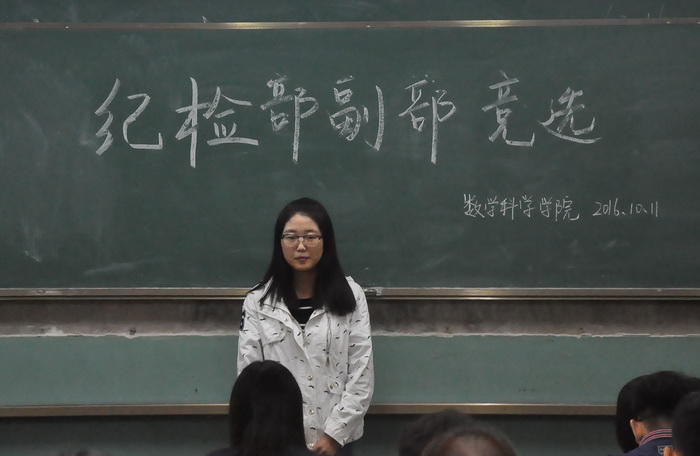 纪检部副部竞选
数学科学学院 2016.10.11